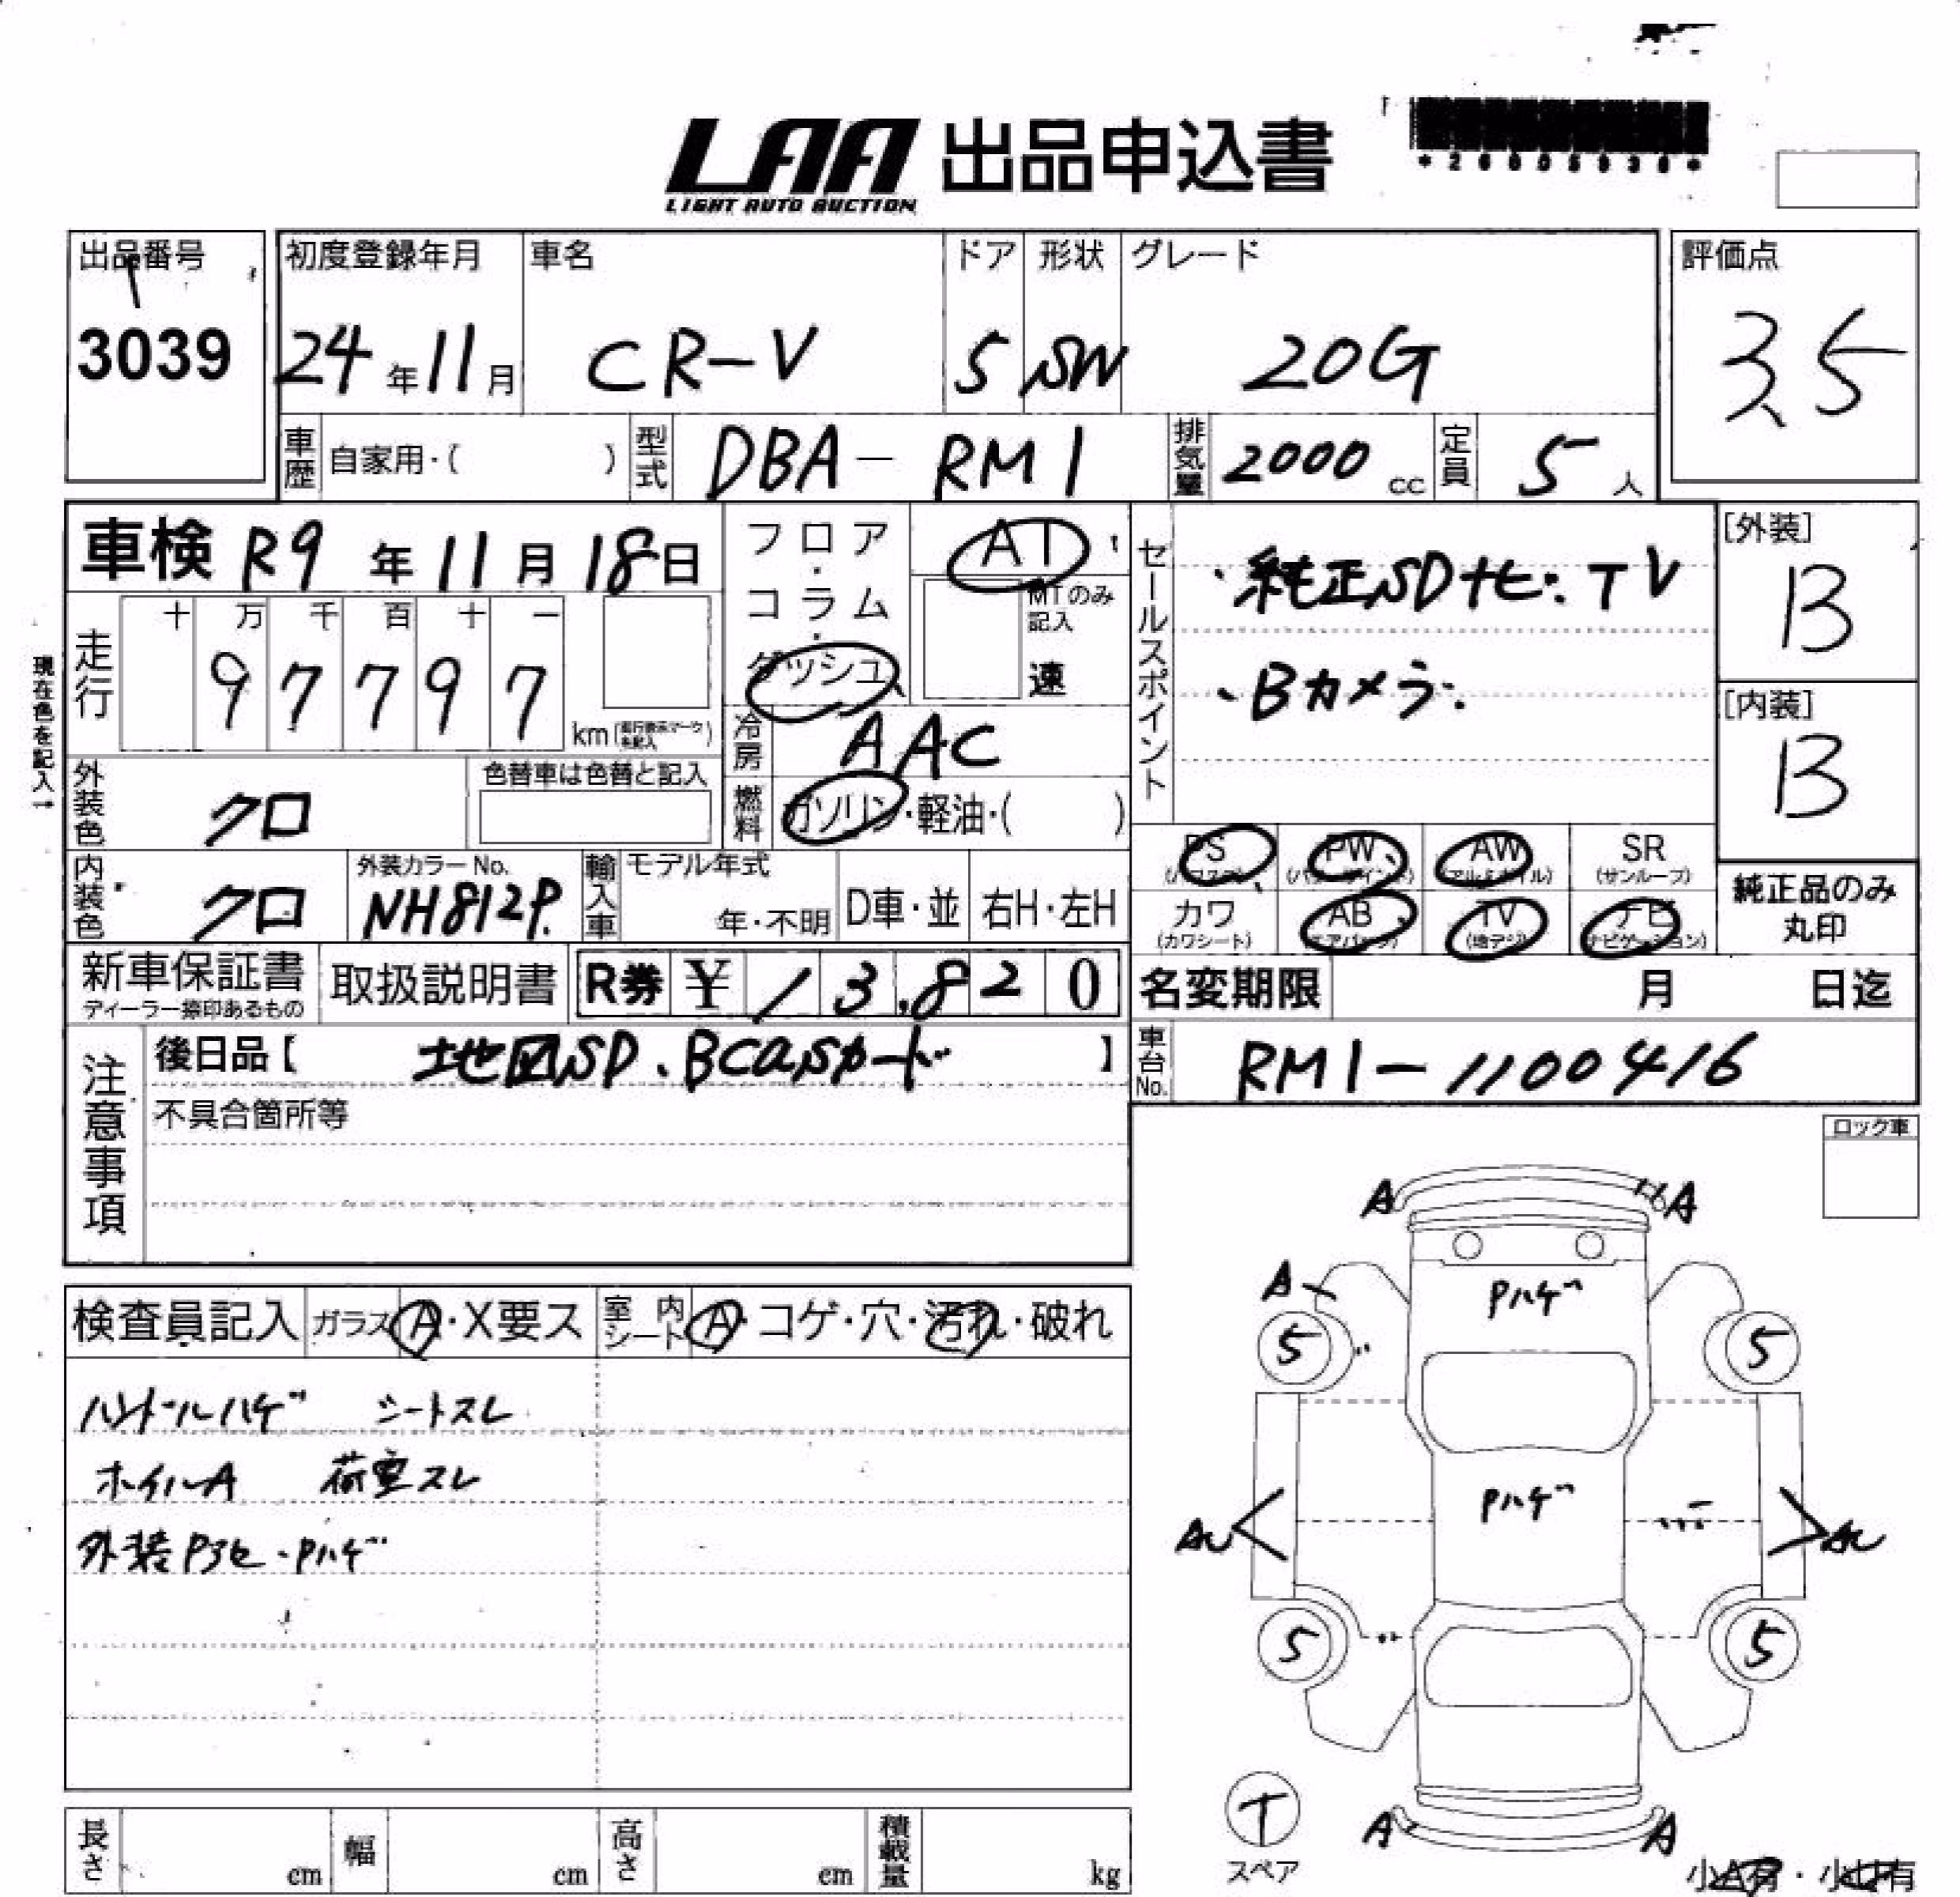 LAA 出品申込書
LIGHT AUTO AUCTION
出品番号 初度登録年月 車名 ドア 形状 グレード 評価点
3039 24年11月 CR-V 5 SW 20G 3.5
車歴 自家用・( ) 型式 DBA-RM1 排気量 2000cc 定員 5人
車検 R9年11月18日 フロア・コラム・ダッシュ AT
MTのみ記入 速
セールスポイント
・純正SDナビ・TV
・Bカメラ・
[外装] B
[内装] B
現在色を記入→
走行 十 万 千 百 十 一
97797 km
冷房 AAC
外装色 クロ 色替車は色替と記入
燃料 ガソリン・軽油・( )
PS PW AW SR
(アルミホイル) (サンルーフ)
内装色 クロ 外装カラーNo. NH812P. 輸入車 モデル年式 年・不明 D車・並 右H・左H
カワ AB TV ナビ
(カワシート) (エアバッグ) (地デジ) (ナビゲーション)
純正品のみ
丸印
新車保証書 取扱説明書 R券 ¥13,820
ディーラー捺印あるもの
名変期限 月 日迄
注意事項
後日品【 地図SD、Bcasカード 】
車台No. RM1-1100416
不具合箇所等
ロック車
A A
A Pハゲ
検査員記入 ガラス A・X要ス 室内シート A・コゲ・穴・汚れ・破れ
5 5
ハンドルハゲ シートスレ
ホイルA 荷室スレ
Pハゲ
外装Pヨセ・Pハゲ
AU AU
5 5
T
スペア
A A
長さ cm 幅 cm 高さ cm 積載量 kg
小A有・小U有